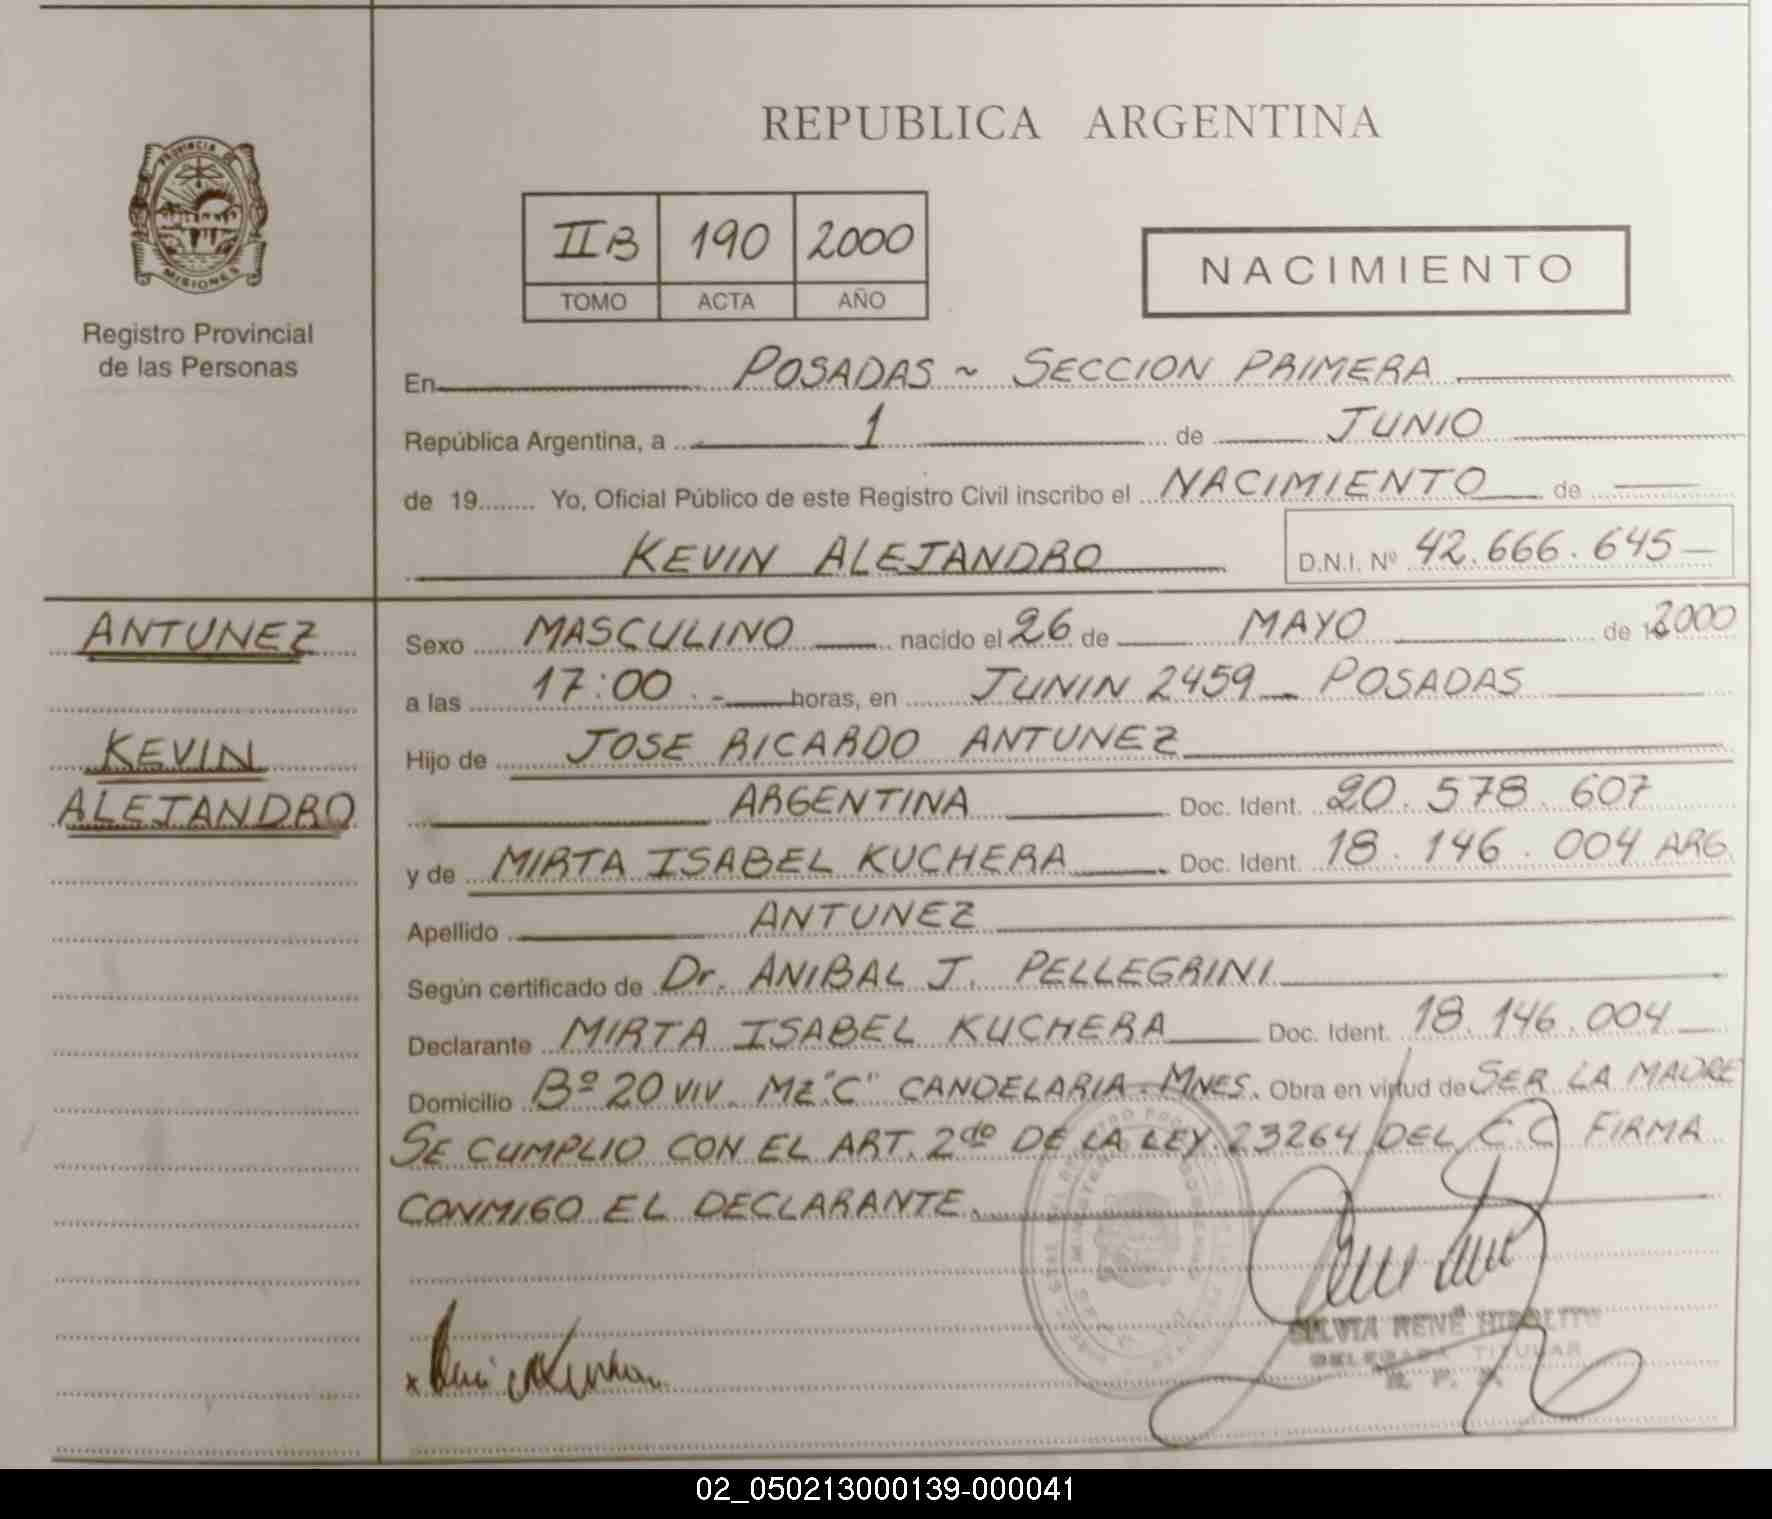 REPUBLICA ARGENTINA
PROVINCIA DE
MISIONES
Registro Provincial
de las Personas
IIB 190 2000
TOMO ACTA AÑO
NACIMIENTO
En POSADAS ~ SECCION PRIMERA
República Argentina, a 1 de JUNIO
de 19........ Yo, Oficial Público de este Registro Civil inscribo el NACIMIENTO de
KEVIN ALEJANDRO D.N.I. Nº 42.666.645
ANTUNEZ
KEVIN
ALEJANDRO
Sexo MASCULINO nacido el 26 de MAYO de 2000
a las 17:00.- horas, en JUNIN 2459 POSADAS
Hijo de JOSE RICARDO ANTUNEZ
ARGENTINA Doc. Ident. 20.578.607
y de MIRTA ISABEL KUCHERA Doc. Ident. 18.146.004 ARG.
Apellido ANTUNEZ
Según certificado de Dr. ANIBAL J. PELLEGRINI
Declarante MIRTA ISABEL KUCHERA Doc. Ident. 18.146.004
Domicilio Bº 20 VIV. MZ "C" CANDELARIA. MNES. Obra en virtud de SER LA MADRE
SE CUMPLIO CON EL ART. 2do DE LA LEY. 23264 DEL C.C FIRMA
CONMIGO EL DECLARANTE.
SILVIA RENÉ HIPOLITO
DELEGADA TITULAR
R. P. P.
02_050213000139-000041